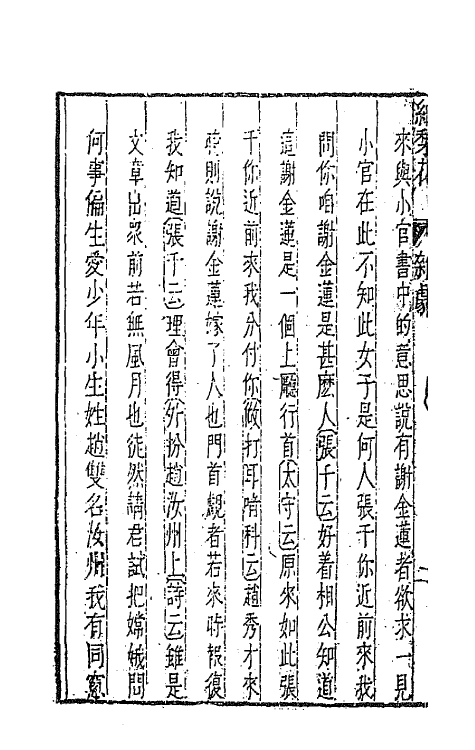 紅梨花　雜劇　二
來與小官書中的意思說有謝金蓮者欲求一見
小官在此不知此女子是何人張千你近前來我
問你咱謝金蓮是甚麽人(張千云)好着相公知道
這謝金蓮是一個上廳行首(太守云)原來如此張
千你近前來我分付你(做打耳喑科云)趙秀才來
時則說謝金蓮嫁了人也門首觀者若來時報復
我知道(張千云)理會得(外扮趙汝州上)(詩云)雖是
文章出衆前若無風月也徒然請君試把嫦娥問
何事偏生愛少年小生姓趙雙名汝州我有同窻